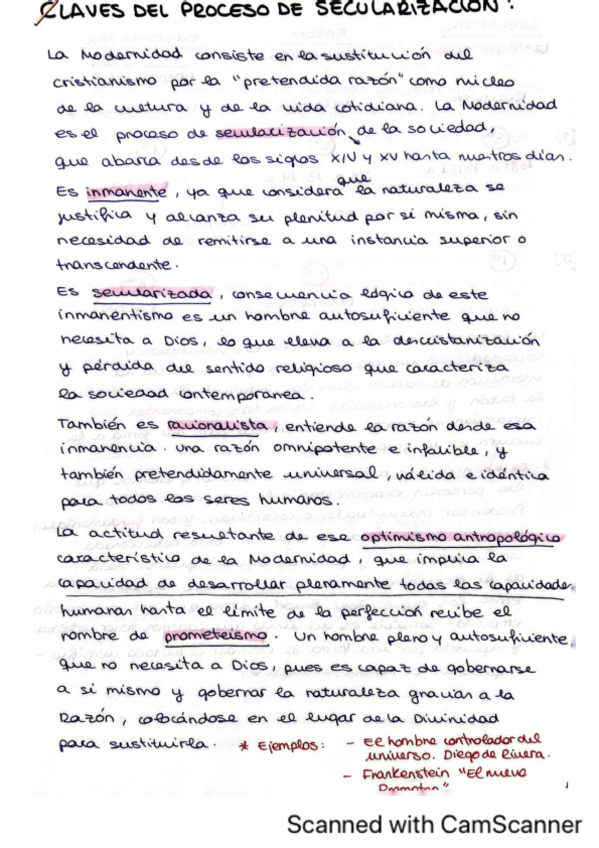 CLAVES DEL PROCESO DE SECULARIZACIÓN:
La Modernidad consiste en la sustitución del
cristianismo por la "pretendida razón" como núcleo
de la cultura y de la vida cotidiana. La Modernidad
es el proceso de secularización de la sociedad,
que abaría desde los siglos XIV y XV hasta nuestros días.
Es inmanente, ya que considera que la naturaleza se
justifica y alcanza su plenitud por sí misma, sin
necesidad de remitirse a una instancia superior o
transcendente.
Es secularizada, consecuencia lógica de este
inmanentismo es un hombre autosuficiente que no
necesita a Dios, lo que lleva a la descristianización
y pérdida del sentido religioso que caracteriza
la sociedad contemporánea.
También es racionalista, entiende la razón donde esa
inmanencia. Una razón omnipotente e infalible, y
también pretendidamente universal, válida e idéntica
para todos los seres humanos.
La actitud resultante de ese optimismo antropológico
característico de la Modernidad, que implica la
capacidad de desarrollar plenamente todas las capacidades
humanas hasta el límite de la perfección recibe el
nombre de prometeísmo. Un hombre pleno y autosuficiente,
que no necesita a Dios, pues es capaz de gobernarse
a si mismo y gobernar la naturaleza gracias a la
Razón, colocándose en el lugar de la Divinidad
para sustituirla. * Ejemplos: - El hombre controlador del
universo. Diego de Rivera.
- Frankenstein "El nuevo
Prometeo"
Scanned with CamScanner